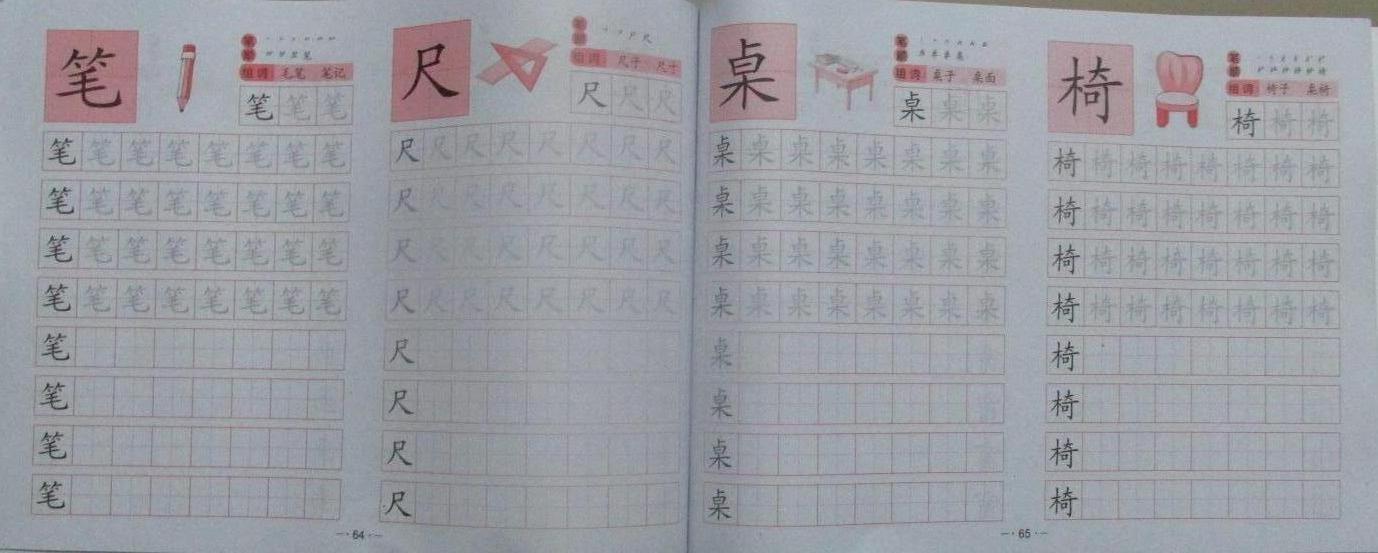 笔
笔顺
组词 毛笔 笔记
笔 笔 笔
笔 笔 笔 笔 笔 笔 笔 笔
笔 笔 笔 笔 笔 笔 笔 笔
笔 笔 笔 笔 笔 笔 笔 笔
笔 笔 笔 笔 笔 笔 笔 笔
笔
笔
笔
笔
尺
笔顺
组词 尺子 尺寸
尺 尺 尺
尺 尺 尺 尺 尺 尺 尺 尺
尺 尺 尺 尺 尺 尺 尺 尺
尺 尺 尺 尺 尺 尺 尺 尺
尺 尺 尺 尺 尺 尺 尺 尺
尺
尺
尺
尺
64
桌
笔顺
组词 桌子 桌面
桌 桌 桌
桌 桌 桌 桌 桌 桌 桌 桌
桌 桌 桌 桌 桌 桌 桌 桌
桌 桌 桌 桌 桌 桌 桌 桌
桌 桌 桌 桌 桌 桌 桌 桌
桌
桌
桌
桌
椅
笔顺
组词 椅子 桌椅
椅 椅 椅
椅 椅 椅 椅 椅 椅 椅 椅
椅 椅 椅 椅 椅 椅 椅 椅
椅 椅 椅 椅 椅 椅 椅 椅
椅 椅 椅 椅 椅 椅 椅 椅
椅
椅
椅
椅
65